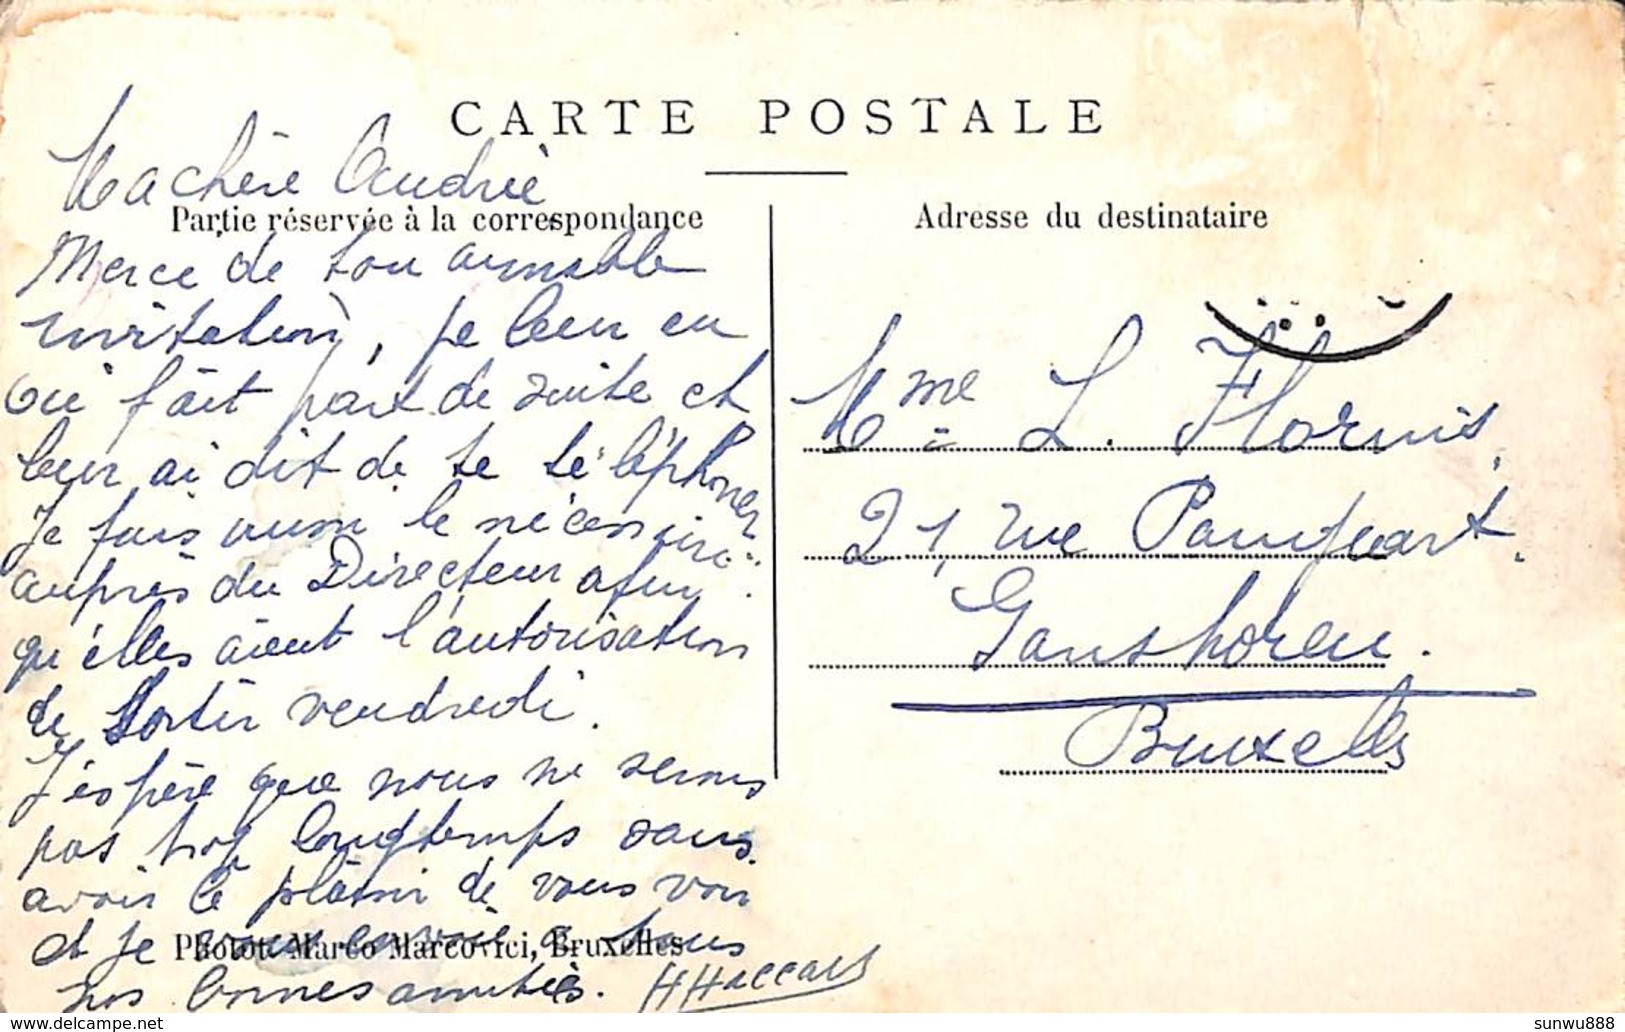 CARTE POSTALE
Ma chère Andrée
Partie réservée à la correspondance
Merci de ton aimable
invitation, je leur en
ai fait part de suite et
leur ai dit de te téléphoner
Je fais aussi le nécessaire
auprès du Directeur afin
qu'elles aient l'autorisation
de sortir vendredi.
J'espère que nous ne serons
pas trop longtemps sans
avoir le plaisir de vous voir
et je vous envoie à tous
Photot. Marco Marcovici, Bruxelles
nos bonnes amitiés.
Adresse du destinataire
Mme L. Flornis
21, rue Pampoart.
Ganshoren.
Bruxelles
delcampe.net
sunwu888